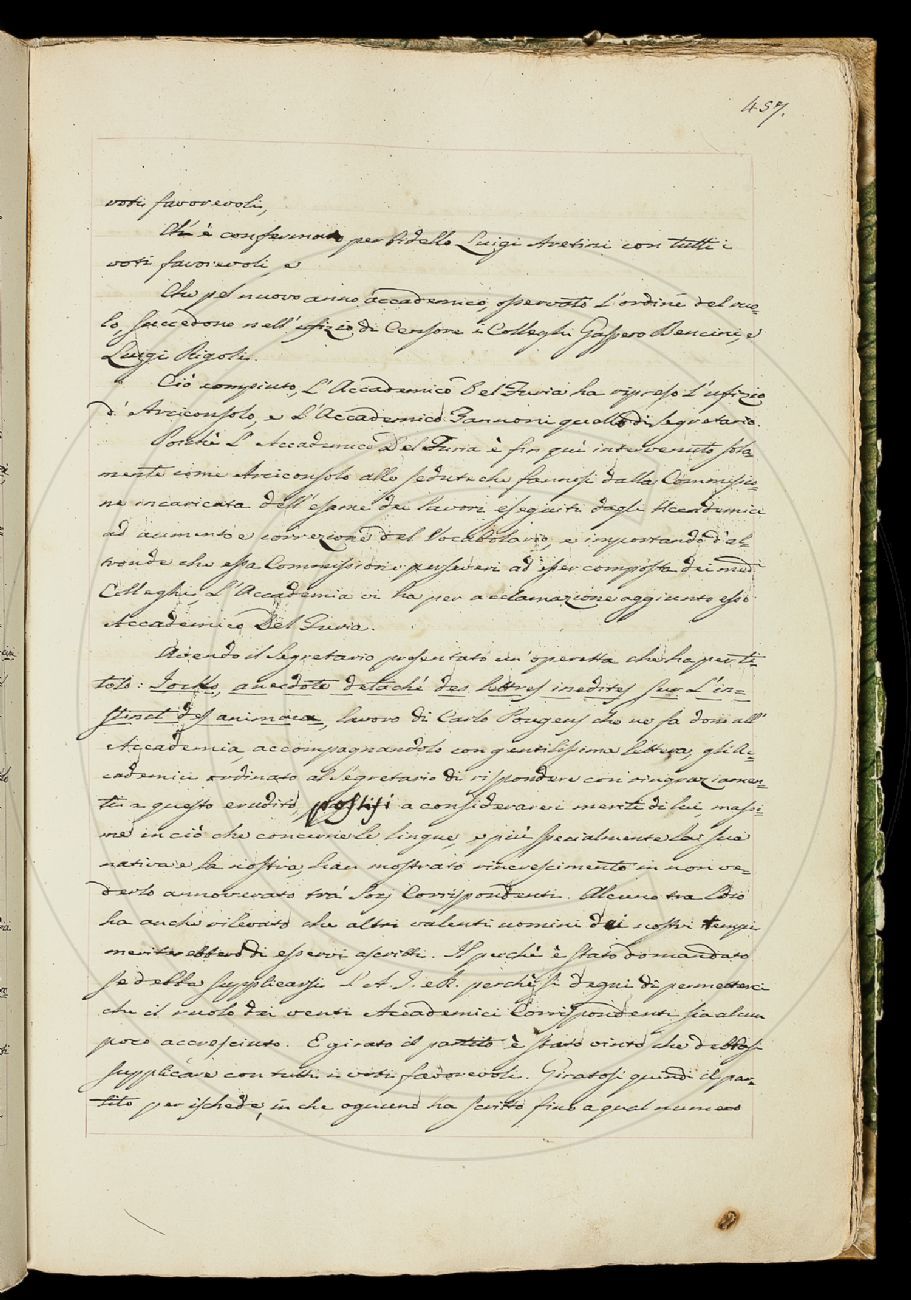 457.
voti favorevoli,
Ch'è confermato per bidello Luigi Aretini con tutti i
voti favorevoli e
Che pel nuovo anno accademico, osservato l'ordine del ruo-
lo, succedono nell'ufizio di Censore i Colleghi Gaspero Bencini, e
Luigi Rigoli.
Ciò compiuto, L'Accademico Del Furia ha ripreso l'ufizio
d'Arciconsolo, e l'Accademico Zannoni quello di Segretario.
Poichè L'Accademico Del Furia è fin qui intervenuto sola-
mente come Arciconsolo alle sedute che fannosi dalla Commissio-
ne incaricata dell'esame dei lavori eseguiti dagli Accademici
ad aumento e correzione del Vocabolario, e importando d'al-
tronde che essa Commissione perseveri ad esser composta dei med.
Colleghi, L'Accademia vi ha per acclamazione aggiunto esso
Accademico Del Furia.
Avendo il Segretario presentato un'operetta che ha per ti-
tolo: Jocko, anecdote detaché des lettres inedites sur l'in-
stinct des animaux, lavoro di Carlo Pougens che ne fa dono all'
Accademia, accompagnandolo con gentilissima lettera, gli Ac-
cademici ordinato al Segretario di rispondere con ringraziamen-
ti a questo erudito, postisi a considerare i meriti di lui, massi-
me in ciò che concerne le lingue, e più specialmente la sua
nativa e la nostra, han mostrato rincrescimento in non ve-
derlo annoverato tra' Socj Corrispondenti. Alcuno tra loro
ha anche rilevato che altri valenti uomini dei nostri tempi
meriterebbero di esservi ascritti. Il perchè è stato domandato
se debba supplicarsi l'A. I. e R. perchè si degni di permetterci
che il ruolo dei venti Accademici Corrispondenti sia alcun
poco accresciuto. E girato il partito è stato vinto che debbasi
supplicare con tutti i voti favorevoli. Giratosi quindi il par-
tito per ischede, in che ognuno ha scritto fino a qual numero